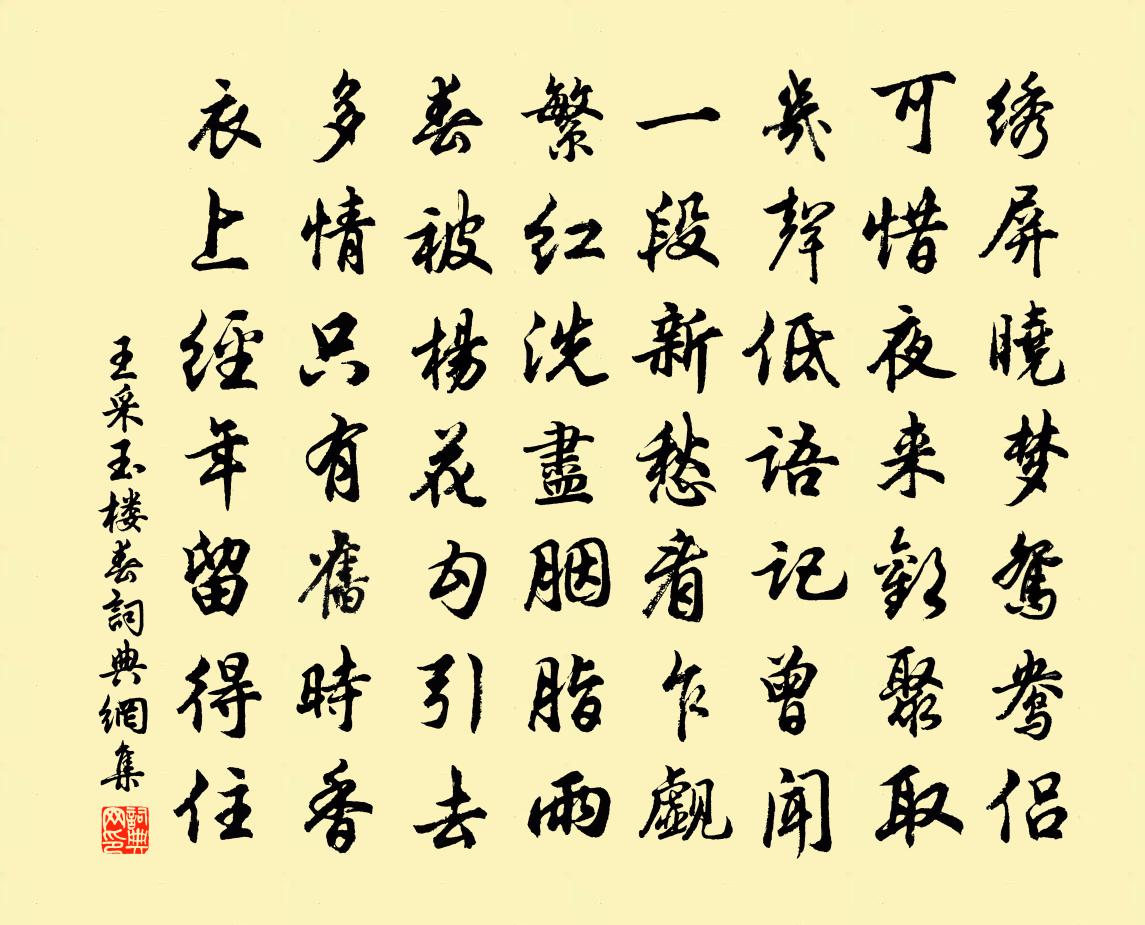 绣屏曉梦鸳鸯侣
可惜夜来歡聚取
幾聲低语记曾闻
一段新愁看乍觑
繁红洗盡胭脂雨
春被楊花勾引去
多情只有舊時香
衣上經年留得住
王采玉楼春詞典網集
詞典网印